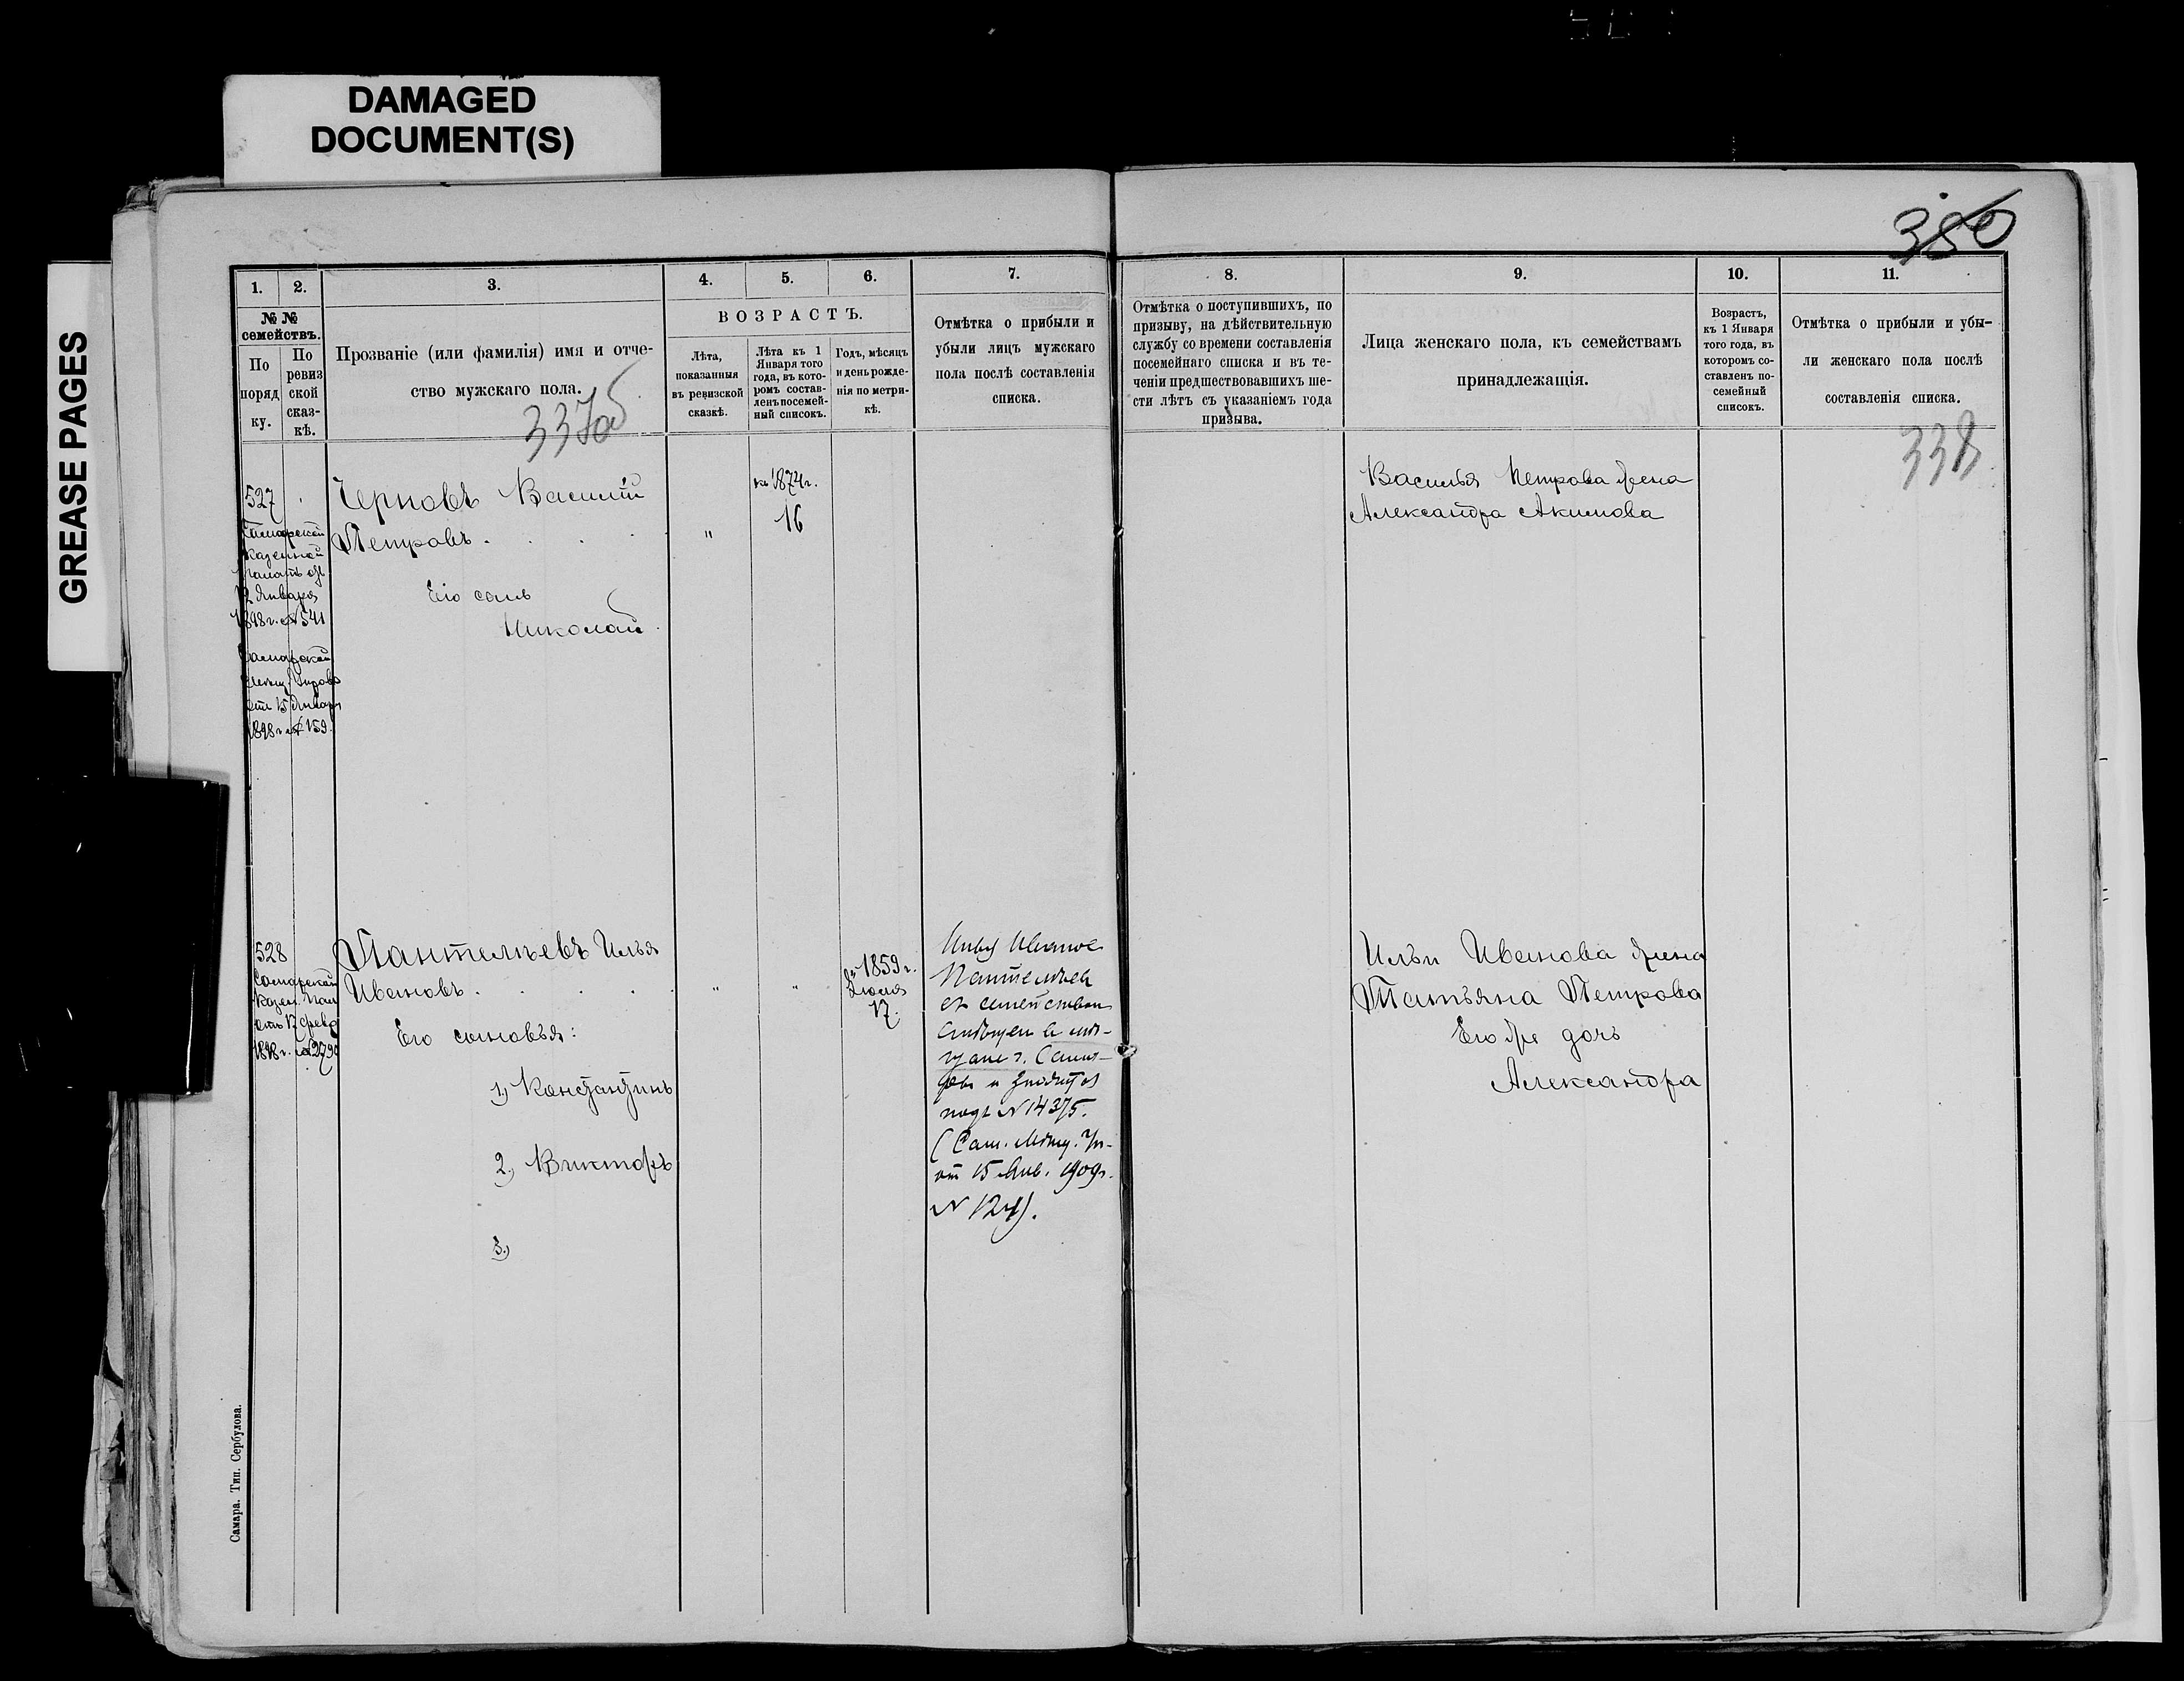 DAMAGED
DOCUMENT(S)
GREASE PAGES
380
1.
2.
3.
4.
5.
6.
7.
8.
9.
10.
11.
№ №
семействъ.
По
поряд
ку.
По
ревиз
ской
сказ-
кѣ.
Прозваніе (или фамилія) имя и отче-
ство мужскаго пола.
337об
ВОЗРАСТЪ.
Лѣта,
показанныя
въ ревизской
сказкѣ.
Лѣта къ 1
Января того
года, въ кото-
ромъ состав-
ленъ посемей-
ный списокъ.
Годъ, мѣсяцъ
и день рожде-
нія по метри-
кѣ.
Отмѣтка о прибыли и
убыли лицъ мужскаго
пола послѣ составленія
списка.
Отмѣтка о поступившихъ, по
призыву, на дѣйствительную
службу со времени составленія
посемейнаго списка и въ те-
ченіи предшествовавшихъ ше-
сти лѣтъ съ указаніемъ года
призыва.
Лица женскаго пола, къ семействамъ
принадлежащія.
Возрастъ,
къ 1 Января
того года, въ
которомъ со-
ставленъ по-
семейный
списокъ.
Отмѣтка о прибыли и убы-
ли женскаго пола послѣ
составленія списка.
338
527
Самарской
Казенной
Палаты отъ
12 Января
1898 г. № 541
Самарской
Мещ. Управы
отъ 15 Января
1898 г. № 159.
Черновъ Василій
Петровъ
"
къ 1874 г.
16
Его сынъ
Николай
Василья Петрова жена
Александра Акимова
528
Самарской
Казен. Пал
отъ 17 Февр
1898 г. № 2790
Пантелѣевъ Илья
Ивановъ
"
"
1859 г.
Іюля
17.
Его сыновья:
1) Константинъ
2) Викторъ
3)
Илья Иванов
Пантелѣевъ
съ семейством
в мѣ-
щане г. Сама-
ры и
подъ № 14375.
(Сам. Мѣщ. Уп.
от 15 Янв. 1909 г.
№ 124).
Ильи Иванова жена
Татьяна Петрова
Его же дочь
Александра
Самара. Тип. Сербулова.